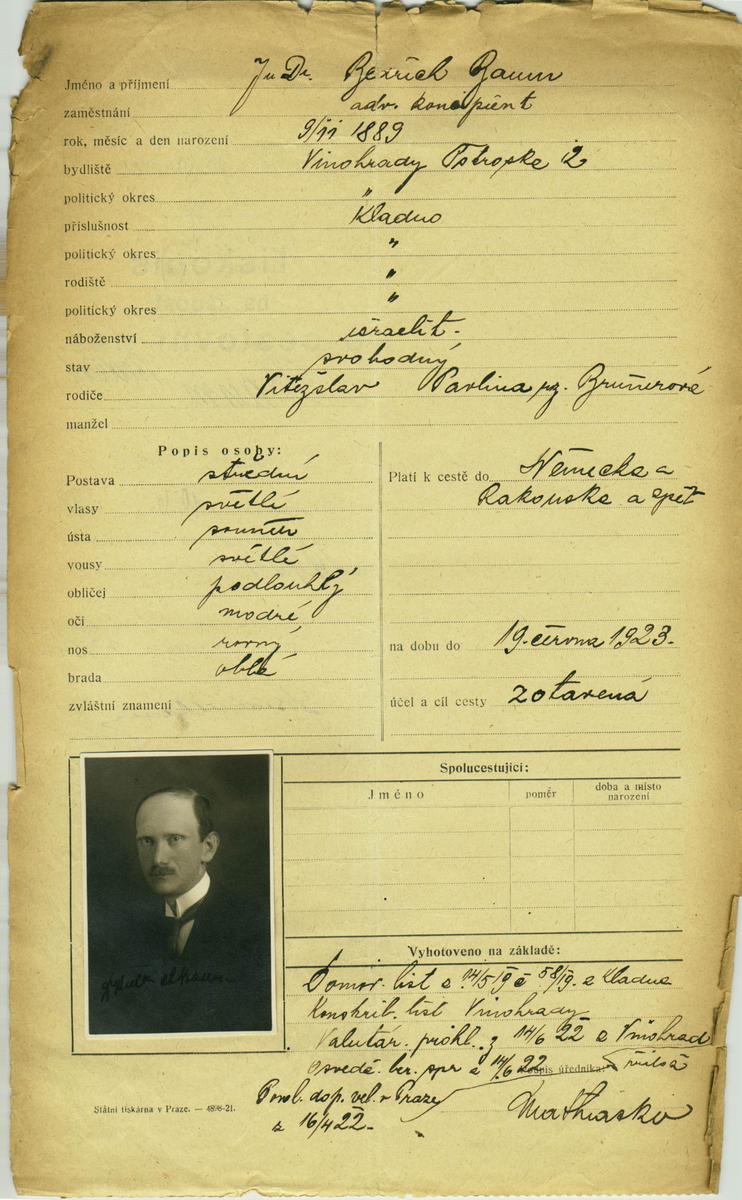 Jméno a příjmení JuDr. Bedřich Baum
zaměstnání adv. koncipient
rok, měsíc a den narození 9/11 1889
bydliště Vinohrady 2
politický okres "
příslušnost Kladno
politický okres "
rodiště "
politický okres "
náboženství israelit.
stav svobodný
rodiče Vítězslav Pavlina roz.
manžel
Popis osoby:
Postava střední
vlasy světlé
ústa souměr
vousy světlé
obličej podlouhlý
oči modré
nos rovný
brada oblá
zvláštní znamení
Platí k cestě do Německa a
Rakouska a zpět
na dobu do 19. června 1923.
účel a cíl cesty zotavená
Spolucestující:
Jméno poměr doba a místo narození
Vyhotoveno na základě:
Domov. list z 14/5 19 č 58/19. z Kladna
Konskrib. list Vinohrady
Valutár. prohl. z 14/6 22 z Vinohrad
osvědč. ber. spr z 14/6 22 Podpis úředníka:
Povol. dop. vel. v Praze
z 16/4 22.
Státní tiskárna v Praze. — 4898-21.